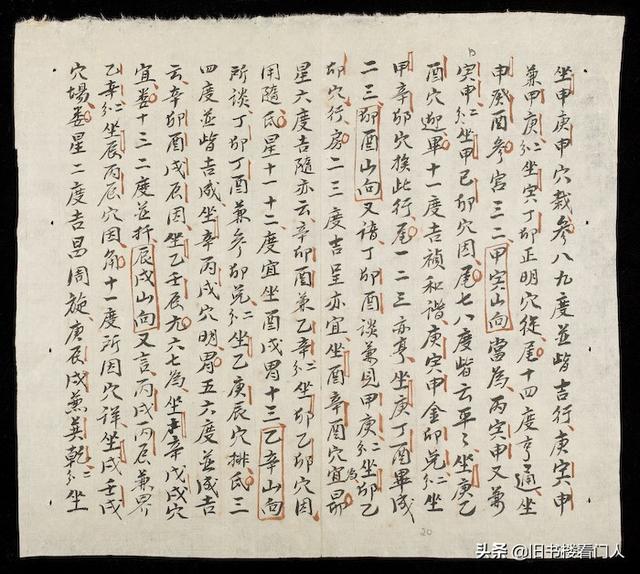 坐申庚申穴裁參八九度並皆吉行庚寅申
兼甲庚分坐寅丁卯正明穴從尾十四度亨通坐
申癸酉參宮三二甲寅山向當為丙寅申又兼
寅申分坐甲己卯穴因尾七八度皆云平平坐庚乙
酉穴迎畢十一度吉禎和諧庚寅申金卯兌分坐
甲辛卯穴挨此行尾一二三亦亨坐庚丁酉畢成
二三卯酉山向又請丁卯酉談兼見甲庚分坐卯乙
卯穴行房二三度吉呈亦宜坐酉辛酉穴宜為昴
星六度吉隨亦云辛卯酉兼乙辛分坐卯乙卯穴因
用隨氐星十一十二度宜坐酉戊胃十三乙辛山向
所談丁卯丁酉兼參卯兌分坐乙庚辰穴排氐三
四度並皆吉成坐辛丙戌穴明胃五六度並成吉
云辛卯酉戌辰因坐乙壬辰亢六七為坐辛戊戌穴
宜婁十三二度並扦辰戌山向又言丙戌丙辰兼界
乙辛分坐辰丙辰穴因角十一度所因穴詳坐戌壬戌
穴場婁星二度吉昌周旋庚辰戌兼巽乾分坐
20
头条 @旧书楼看门人